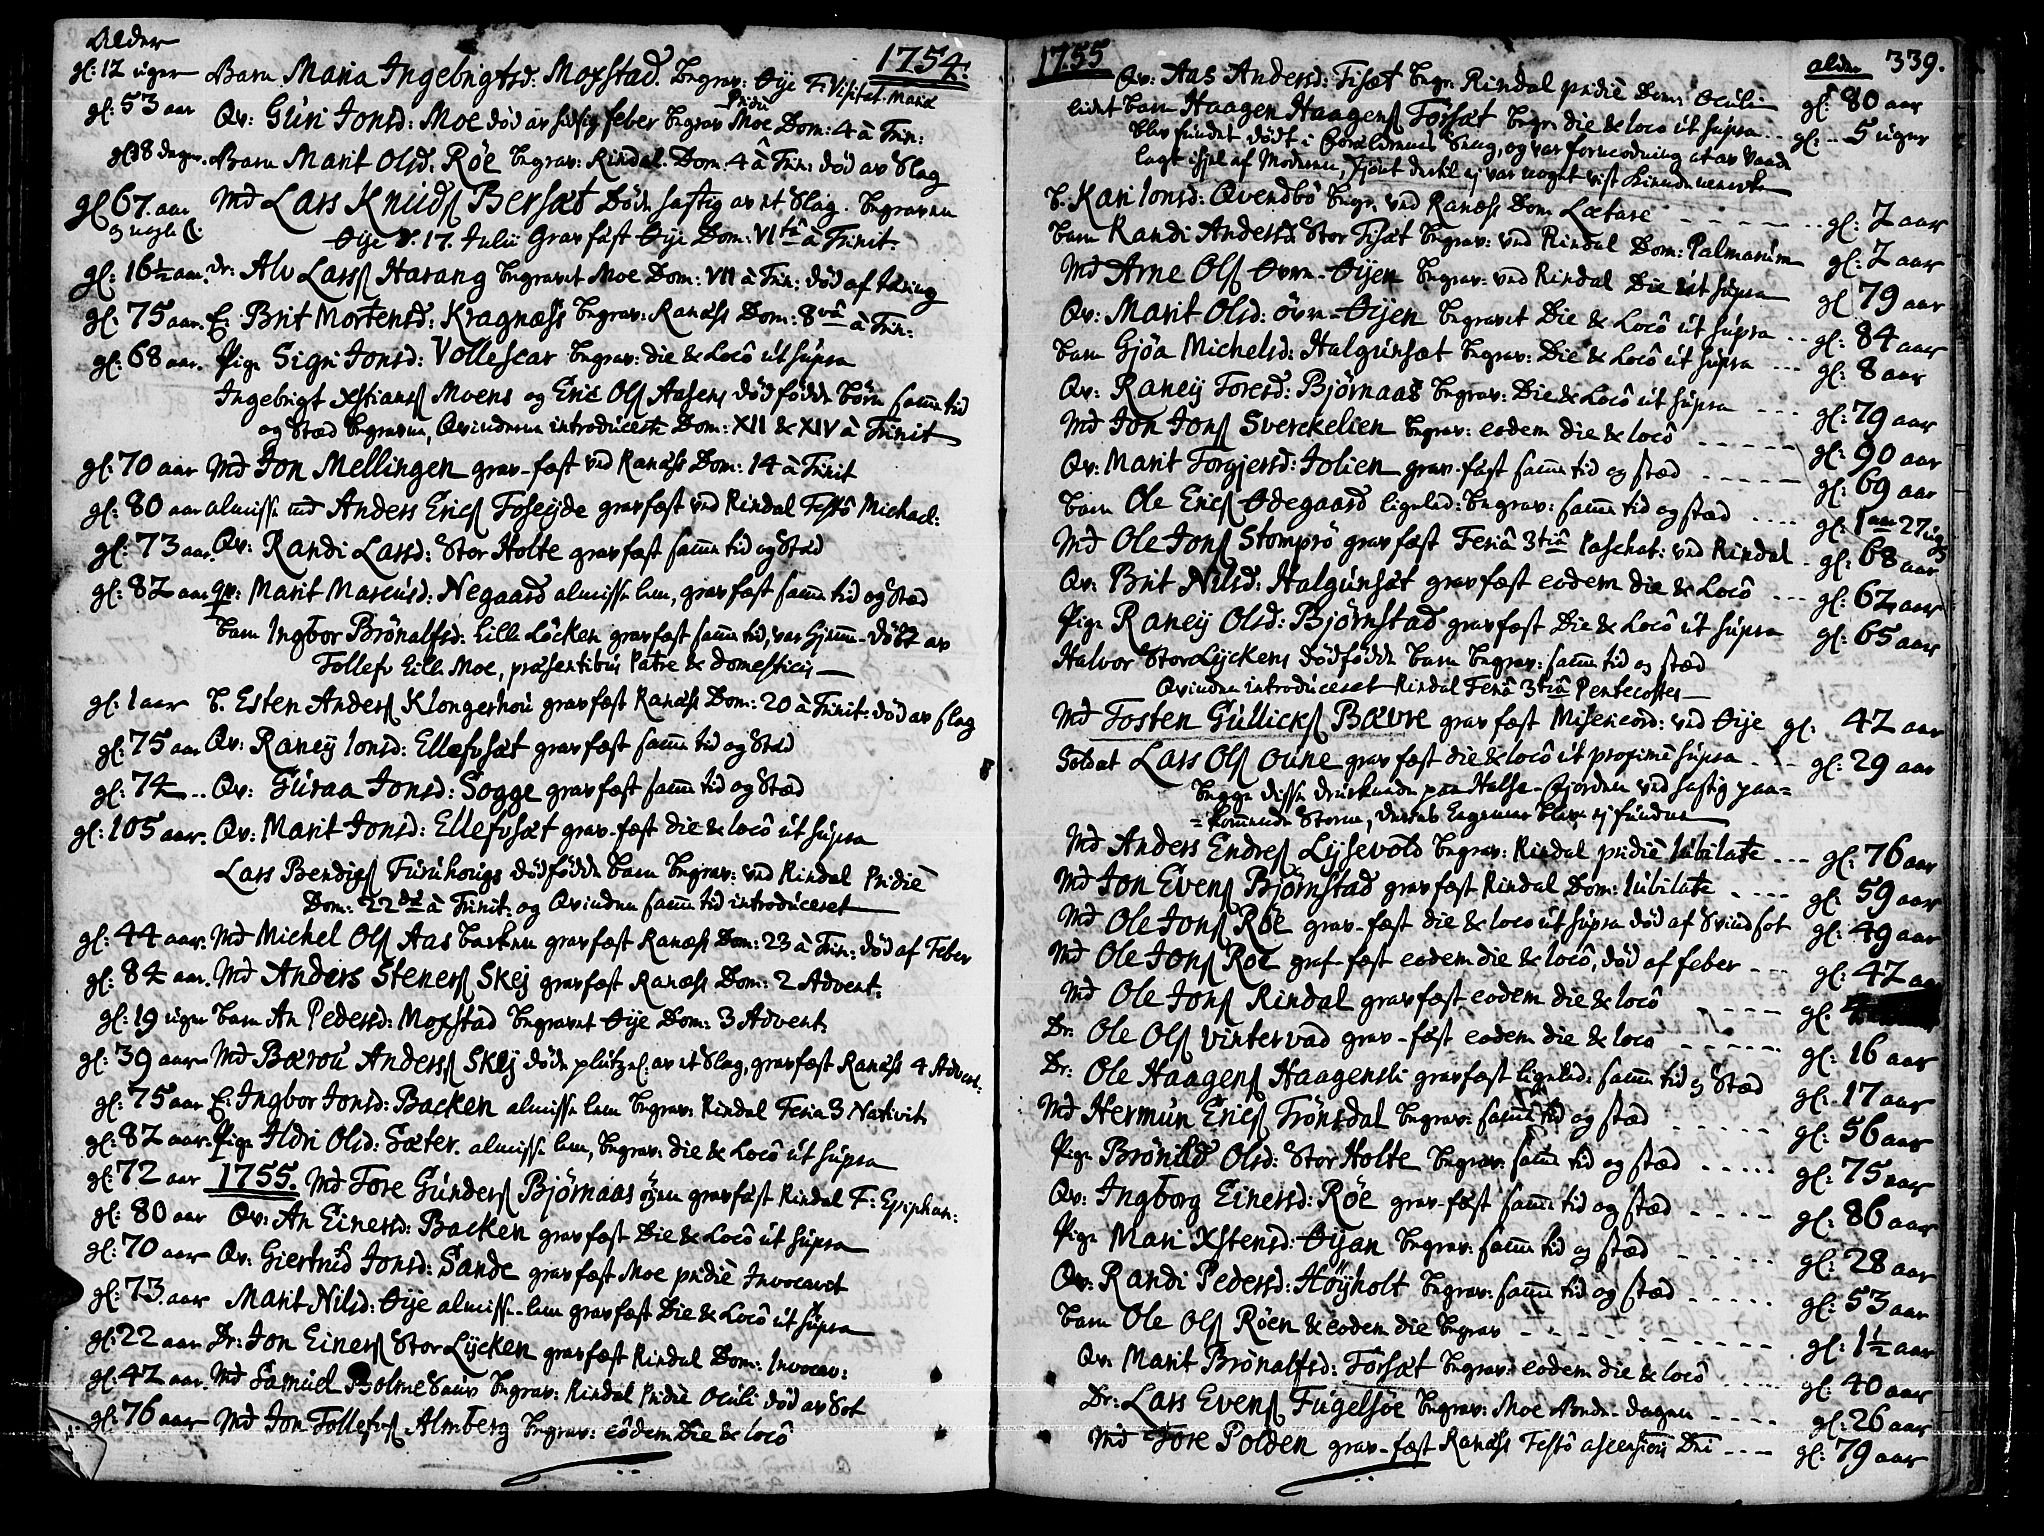 Alder
1754.
gl: 12 uger Barn Maria Ingebrigtsd: Moxstad. begrav: Øije F: Visitat. Mariæ
gl: 53 aar Qv: Guri Jonsd: Moe død av hidsig feber begrav Pridie Moe Dom: 4 à Trin:
gl: 8 dager. Barn Marit Olsd. Røe begrav: Rindal. Dom. 4 à Trin: død av Slag
gl 67. aar Md Lars Knudss Bersæt døde hastig av et Slag. begraven
Øije d. 17. Julii Gravfæst Øije Dom: VI tâ à Trinit.
gl: 16½ aar. dr: Alv Larss Harang begravet Moe Dom: VII à Trin: død af tæring
gl: 75 aar. E: Brit Mortensd: Kragnæss begrav: Ranæss Dom: 8vâ à Trin:
gl: 68 aar. Pige Sigri Jonsd: Vollescar begrav: die & Locô ut supra
Ingebrigt Xstianss Moens og Eric Olss Aasens dødfødde børn samme tid
og Stæd begraven, Qvinderne introduceste Dom: XII & XIV à Trinit
gl: 70 aar Md Jon Mellingen grav-fæst ved Ranæss Dom: 14 à Trinit
gl: 80 aar almisse md Anders Ericss Foseijde gravfæst ved Rindal Festô Michael:
gl: 73 aar. Qv: Randi Larsd: Stor Holte gravfæst samme tid og Stæd
gl: 82 aar qv: Marit Marcusd: Negaard almisse lem, gravfæst samme tid og Stæd
barn Ingbor Brönalfsd: Lille Löcken gravfæst samme tid, var hjemme-døbt av
Tollefv Lille Moe, præsentibus Patre & domesticis
gl: 1 aar b. Esten Anderss Klongerhou gravfæst Ranæss Dom: 20 à Trinit: død av slag
gl: 75 aar Qv: Raneÿ Ionsd: Ellefvsæt gravfæst samme tid og Stæd
gl: 74 .. Qv: Guraa Jonsd: Sogge gravfæst samme tid og Stæd
gl: 105 aar. Qv: Marit Jonsd: Ellefvsæt grav-fæst die & locô ut supra
Lars Bendigss Furuhougs dødfødde barn begrav: ved Rindal Pridiè
Dom: 22 dâ à Trinit: og Qvinden samme tid introduceret
gl: 44 aar. Md Michel Olss Aas barken gravfæst Ranæss Dom: 23 à Trin: død af Feber
gl: 84 aar. Md Anders Stenerss Skej gravfæst Ranæss Dom: 2 Advent:
gl: 19 uger barn An Pedersd: Moxstad begravet Øije Dom: 3 Advent:
gl: 39 aar Md Bærou Anderss Skej døde plutzel: av et Slag, gravfæst Ranæss 4 Advent:
gl: 75 aar E: Ingbor Jonsd: Backen almisse lem begrav: Rindal Feria 3 Nativit:
gl: 82 aar. Pige Ildri Olsd: Sæter. almisse lem, begrav: die & Locô ut supra
gl: 72 aar 1755. Md Tore Gunderss Björnaas øvre gravfæst Rindal F: Epiphan:
gl: 80 aar Qv: An Einersd: Backen gravfæst Die & Locô ut supra
gl: 70 aar Qv: Giertrud Jonsd: Sande gravfæst Moe pridiè Invocavit
gl: 73. aar Marit Nilsd: Øije almisse-lem gravfæst Die & Locô ut supra
gl: 22 aar Dr: Jon Einerss Stor Lÿcken gravfæst Rindal Dom: Invocav:
gl: 42 aar. Md Samuel Bolme begrav: Rindal Pridie Oculi død av Sot
gl: 76 aar Md Jon Tollefvss Almberg begrav: eôdem Die & locô
1755
alder 339.
Qv: Aas Andersd: Fisæt begr. Rindal pridiè Dom: Oculi gl: 80 aar
lidet barn Haagen Haagenss Forsæt begr. die & loco ut supra .. gl: .. 5 uger
blev fundet dødt i Forældrenes Seng, og var formodning at av Vaade
lagt ihjel af Moderen, skiønt dertil ej var noget vist kiendemerke
b. Kari Ionsd: Qvendbö begr. ved Ranæss Dom Lætare gl: 7 aar
barn Randi Andersd. Stor Fisæt begrav: ved Rindal Dom: Palmarum gl: 7 aar
Md Arne Olss Øvre-Øijen begrav: ved Rindal Die ut supra gl 79 aar
Qv: Marit Olsd: øvre-Øijen begravet Die & Locô ut supra .. gl: 84 aar
barn Gjöa Michelsd: Halgunsæt begrav: Die & Locô ut supra ... gl: 8 aar
Qv: Raneij Toresd: Björnaas begrav: Die & Locô ut supra ... gl: 79 aar
Md Jon Jonss Sverckelien begrav: eodem die & locô gl: 90 aar
Qv: Marit Torgjersd: Jolien grav-fæst samme tid og stæd gl: 69 aar
barn Ole Ericss Ødegaard ligeled: begrav: samme tid og stæd .... gl: 1 aar 27 ug
Md Ole Jonss Stomprö gravfæst Feriâ 3tiâ Paschat: ved Rindal gl: 68 aar
Qv: Brit Nilsd: Halgunsæt gravfæst eodem die & Locô ... gl: 62 aar
Pige Raneij Olsd: Björnstad gravfæst Die & Locô ut supra gl: 65 aar
Halvor StorLyckens dødfødde barn begrav: samme tid og stæd
Qvinden introduceret Rindal Feriâ 3tiâ Pentecostes
Md Tosten Gullickss Bævre gravfæst Misericord: ved Øije gl: 42 aar
Soldat Lars Olss Oune gravfæst die & locô ut proximè supra gl: 29 aar
begge disse druknede paa Halse-Fjorden ved hastig paa=
=kommende Storm, deres Legemer blev ej funden
Md Anders Endress Lijsevold begrav: Rindal pridiè Iubilate ... gl: 76 aar
Md Jon Evenss Björnstad gravfæst Rindal Dom: Iubilate gl: 59 aar
Md Ole Jonss Röe grav-fæst die & loco ut supra død af Svindsot gl: 49 aar
Md Ole Jonss Roe graf-fæst eodem die & locô, død af feber gl: 42 aar
Md Ole Jonss Rindal gravfæst eodem die & locô gl:
Dr: Ole Olss Vintervad grav-fæst eodem die & loco gl: 16 aar
Dr: Ole Haagenss Haagensli gravfæst ligeled: samme tid og Stæd gl: 17 aar
Md Hermun Ericss Trönsdal begrav: samme tid og stæd gl: 56 aar
Pige Brönild Olsd: Stor Holte begrav: samme tid og stæd gl: 75 aar
Qv: Ingborg Einersd: Röe grav-fæst samme tid og stæd gl: 86 aar
Pige Mari Xstensd: Øijan begrav: samme tid og stæd gl: 28 aar
Qv: Randi Pedersd: Höÿholt begrav: samme tid og stæd gl: 53 aar
barn Ole Olss Röen & eodem die begrav gl: 1½ aar
Qv: Marit Brönalfsd: Forsæt begrav: eodem die & locô gl: 40 aar
Dr: Lars Evenss Fugelsöe begrav: Moe Bende-dagen gl: 26 aar
Md Tore Polden grav-fæst Ranæss Festô ascensiôis Dni gl: 79 aar